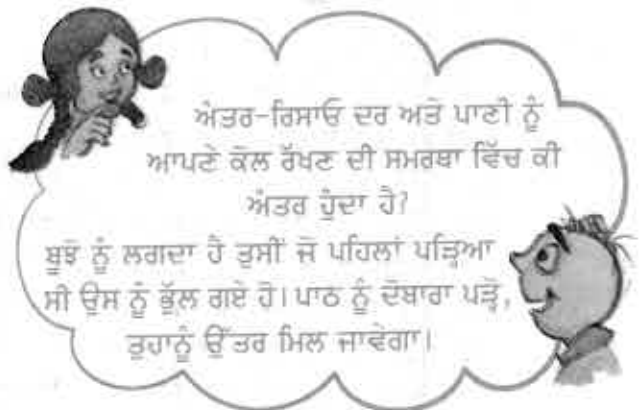 ਅੰਤਰ-ਰਿਸਾਓ ਦਰ ਅਤੇ ਪਾਣੀ ਨੂੰ
ਆਪਣੇ ਕੋਲ ਰੱਖਣ ਦੀ ਸਮਰਥਾ ਵਿੱਚ ਕੀ
ਅੰਤਰ ਹੁੰਦਾ ਹੈ?
ਬੂਝੋ ਨੂੰ ਲਗਦਾ ਹੈ ਤੁਸੀਂ ਜੋ ਪਹਿਲਾਂ ਪੜ੍ਹਿਆ
ਸੀ ਉਸ ਨੂੰ ਭੁੱਲ ਗਏ ਹੋ। ਪਾਠ ਨੂੰ ਦੋਬਾਰਾ ਪੜ੍ਹੋ,
ਤੁਹਾਨੂੰ ਉੱਤਰ ਮਿਲ ਜਾਵੇਗਾ।